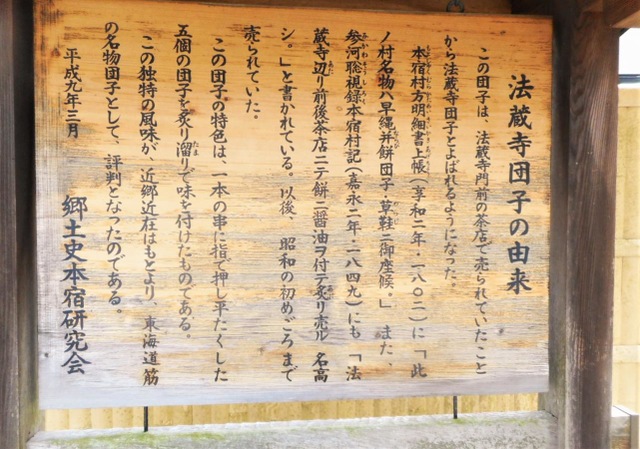 法蔵寺団子の由来
この団子は、法蔵寺門前の茶店で売られていたこと
から法蔵寺団子とよばれるようになった。
本宿村方明細書上帳(享和二年・一八〇二)に「此
ノ村名物ハ早縄并餅団子、草鞋ニ御座候。」また、
参河聡視録本宿村記(嘉永二年・一八四九)にも「法
蔵寺辺リ前後茶店ニテ餅ニ醤油ヲ付テ炙リ売ル 名高
シ。」と書かれている。以後、昭和の初めごろまで
売られていた。
この団子の特色は、一本の串に指で押し平たくした
五個の団子を炙り溜りで味を付けたものである。
この独特の風味が、近郷近在はもとより、東海道筋
の名物団子として、評判となったのである。
平成九年三月
郷土史本宿研究会